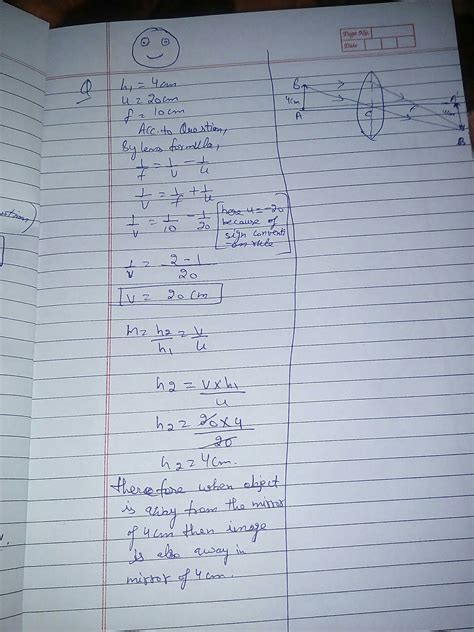 Page No.
Date
Q
h₁ = 4cm
u = 20cm
f = 10cm
Acc. to Question,
By lens formula,
1/f = 1/v - 1/u
1/v = 1/f + 1/u
1/v = 1/10 - 1/20 [here u = -20
because of
sign conventi
on rule]
1/v = 2-1/20
v = 20cm
M = h₂/h₁ = v/u
h₂ = v×h₁/u
h₂ = 20×4/20
h₂ = 4cm.
therefore when object
is away from the mirror
of 4cm then image
is also away in
mirror of 4cm.
B
4cm
A
C
A'
4cm
B'